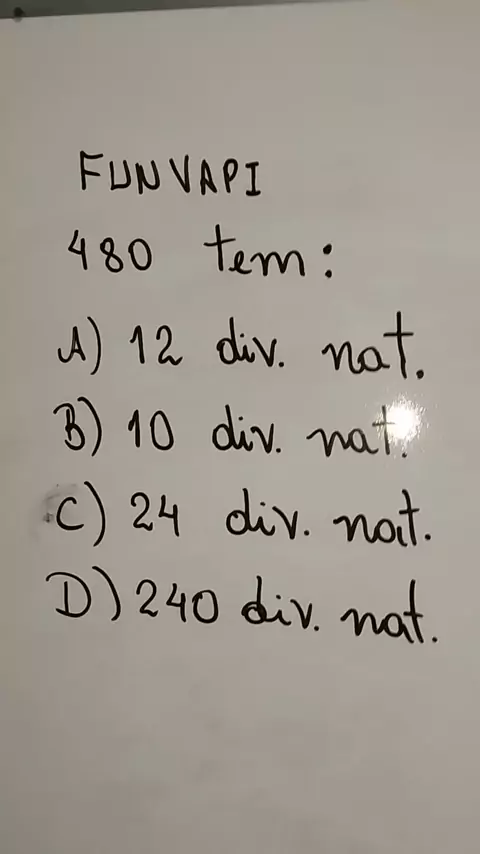 FUNVAPI
480 tem:
A) 12 div. nat.
B) 10 div. nat.
C) 24 div. nat.
D) 240 div. nat.